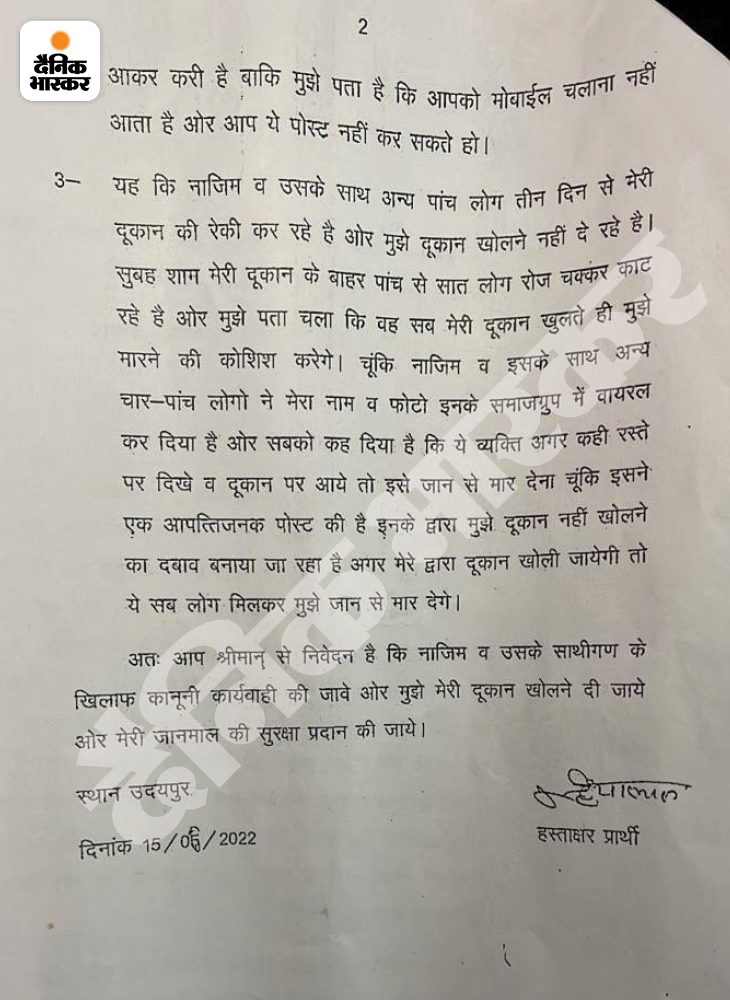 2
दैनिक
भास्कर
आकर करी है बाकि मुझे पता है कि आपको मोबाईल चलाना नहीं
आता है ओर आप ये पोस्ट नहीं कर सकते हो।
3– यह कि नाजिम व उसके साथ अन्य पांच लोग तीन दिन से मेरी
दूकान की रेकी कर रहे है ओर मुझे दूकान खोलने नहीं दे रहे है।
सुबह शाम मेरी दूकान के बाहर पांच से सात लोग रोज चक्कर काट
रहे है ओर मुझे पता चला कि वह सब मेरी दूकान खुलते ही मुझे
मारने की कोशिश करेगे। चूंकि नाजिम व इसके साथ अन्य
चार–पांच लोगो ने मेरा नाम व फोटो इनके समाजग्रुप में वायरल
कर दिया है ओर सबको कह दिया है कि ये व्यक्ति अगर कही रस्ते
पर दिखे व दूकान पर आये तो इसे जान से मार देना चूंकि इसने
एक आपत्तिजनक पोस्ट की है इनके द्वारा मुझे दूकान नहीं खोलने
का दबाव बनाया जा रहा है अगर मेरे द्वारा दूकान खोली जायेगी तो
ये सब लोग मिलकर मुझे जान से मार देगे।
अतः आप श्रीमान् से निवेदन है कि नाजिम व उसके साथीगण के
खिलाफ कानूनी कार्यवाही की जावे ओर मुझे मेरी दूकान खोलने दी जाये
ओर मेरी जानमाल की सुरक्षा प्रदान की जाये।
स्थान उदयपुर
दिनांक 15/06/2022
हस्ताक्षर प्रार्थी
दैनिक भास्कर